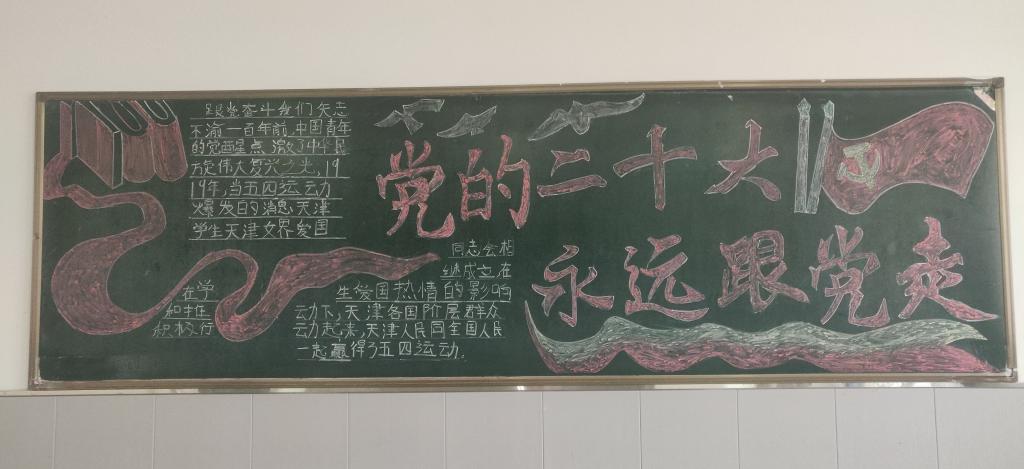 跟党奋斗我们矢志
不渝一百年前,中国青年
的觉醒星点,激了中华民
族伟大复兴之光,19
19年,当五四运动
爆发的消息天津
学生天津文界爱国
党的二十大
永远跟党走
同志会相
继成立在
生爱国热情的影响
动下,天津各国阶层群众
动起来,天津人民同全国人民
一起赢得了五四运动。
在学
和
积极行